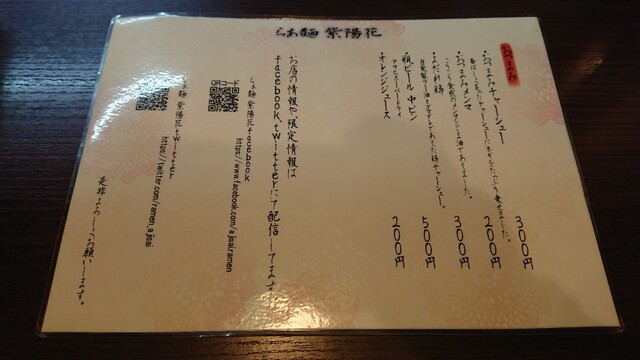 らぁ麺 紫陽花
おつまみ
・おつまみチャーシュー 300円
・おつまみメンマ 200円
・よだれ豚 300円
・瓶ビール 中ビン 500円
アサヒスーパードライ
・オレンジジュース 200円
お店の情報や限定情報は
facebook、twitterにて配信してます
らぁ麺 紫陽花facebook
QRコード
https://www.facebook.com/ajisai.ramen
らぁ麺 紫陽花twitter
https://twitter.com/ramen_ajisai
是非よろしくお願いします。